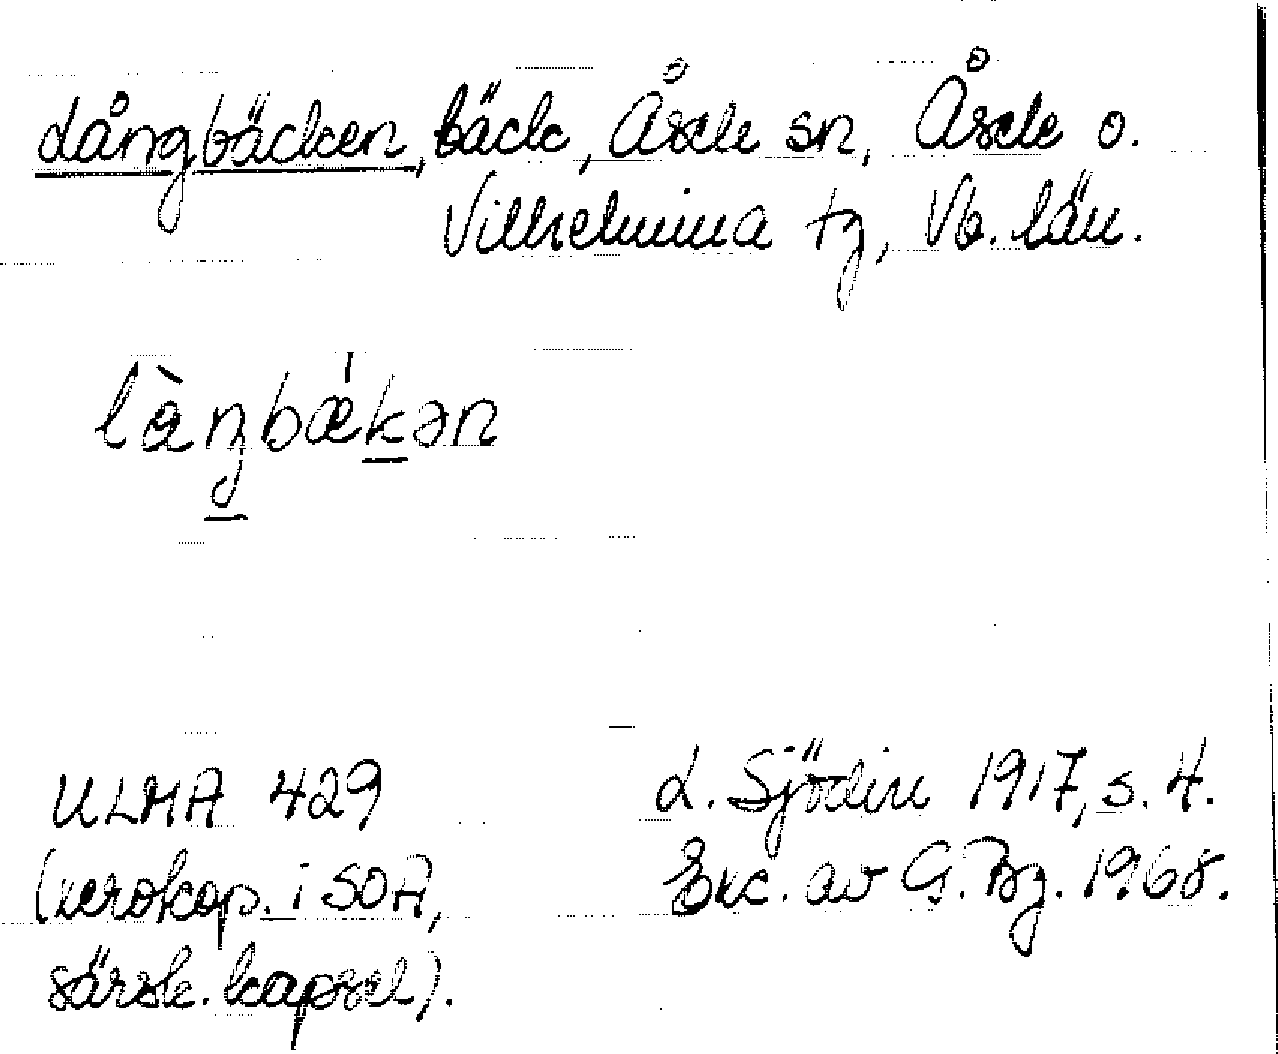 Långbäcken, bäck, Åsele sn, Åsele o.
Vilhelmina tg, Vb. län.
làŋbǽkən
ULMA 429
(xerokop. i SOA,
särsk. kapsel).
L. Sjödin 1917, s. 4.
Exc. av G. Bg. 1968.